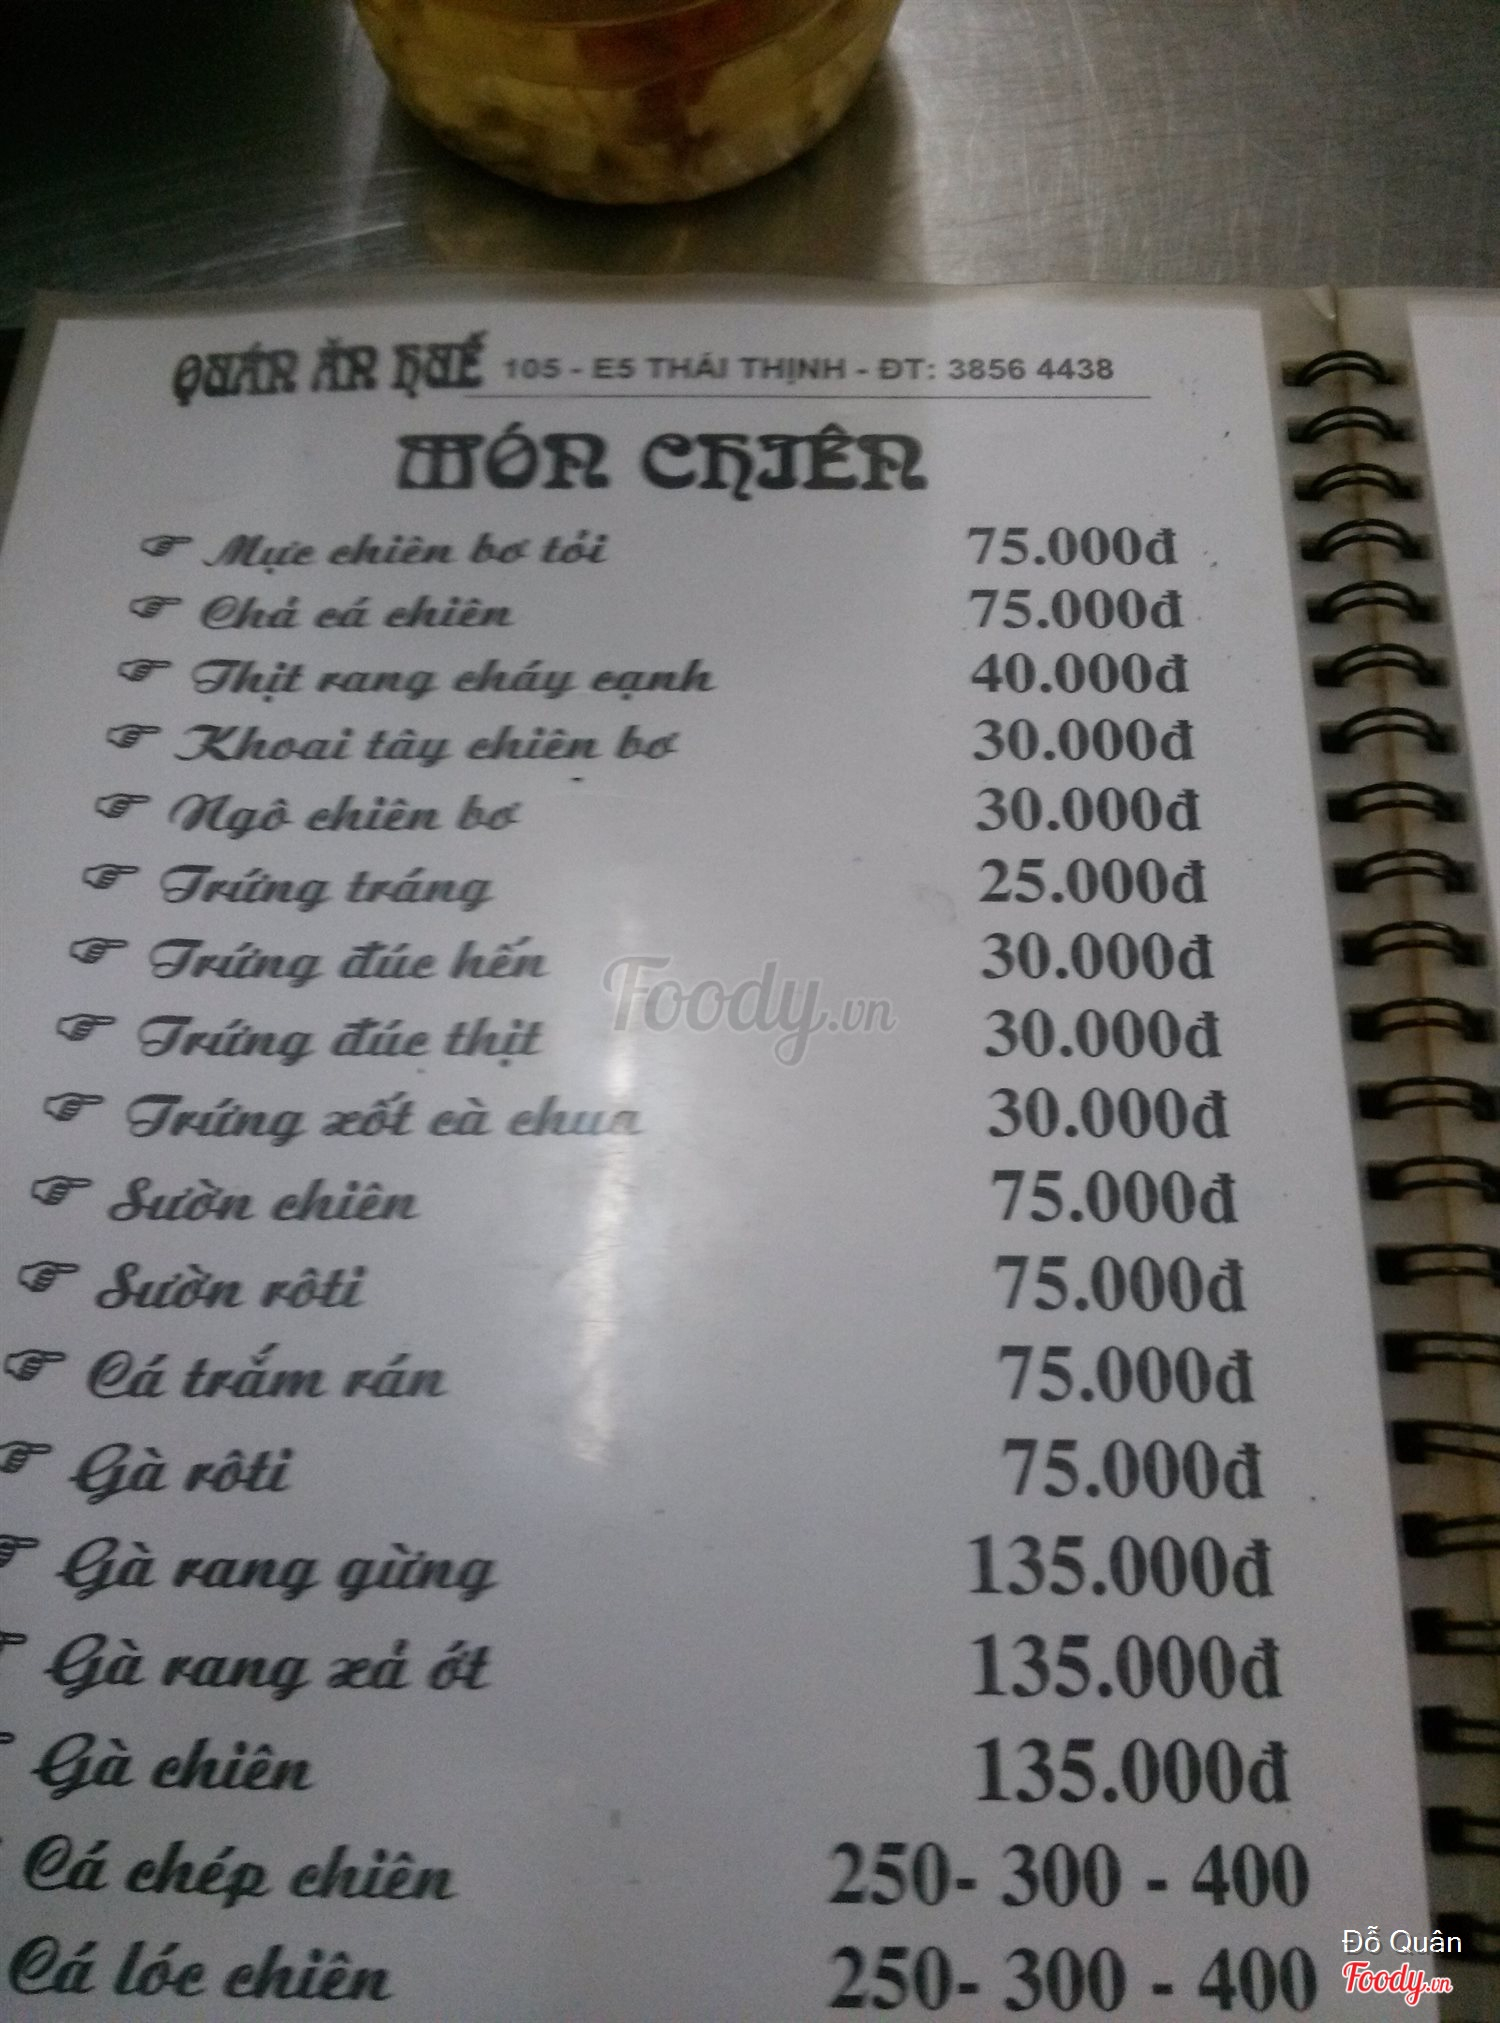 QUÁN ĂN HUẾ 105 - E5 THÁI THỊNH - ĐT: 3856 4438
MÓN CHIÊN
Mực chiên bơ tỏi 75.000đ
Chả cá chiên 75.000đ
Thịt rang cháy cạnh 40.000đ
Khoai tây chiên bơ 30.000đ
Ngô chiên bơ 30.000đ
Trứng tráng 25.000đ
Trứng đúc hến 30.000đ
Foody.vn
Trứng đúc thịt 30.000đ
Trứng xốt cà chua 30.000đ
Sườn chiên 75.000đ
Sườn rôti 75.000đ
Cá trắm rán 75.000đ
Gà rôti 75.000đ
Gà rang gừng 135.000đ
Gà rang xả ớt 135.000đ
Gà chiên 135.000đ
Cá chép chiên 250- 300 - 400
Cá lóc chiên 250- 300 - 400
Đỗ Quân
Foody.vn